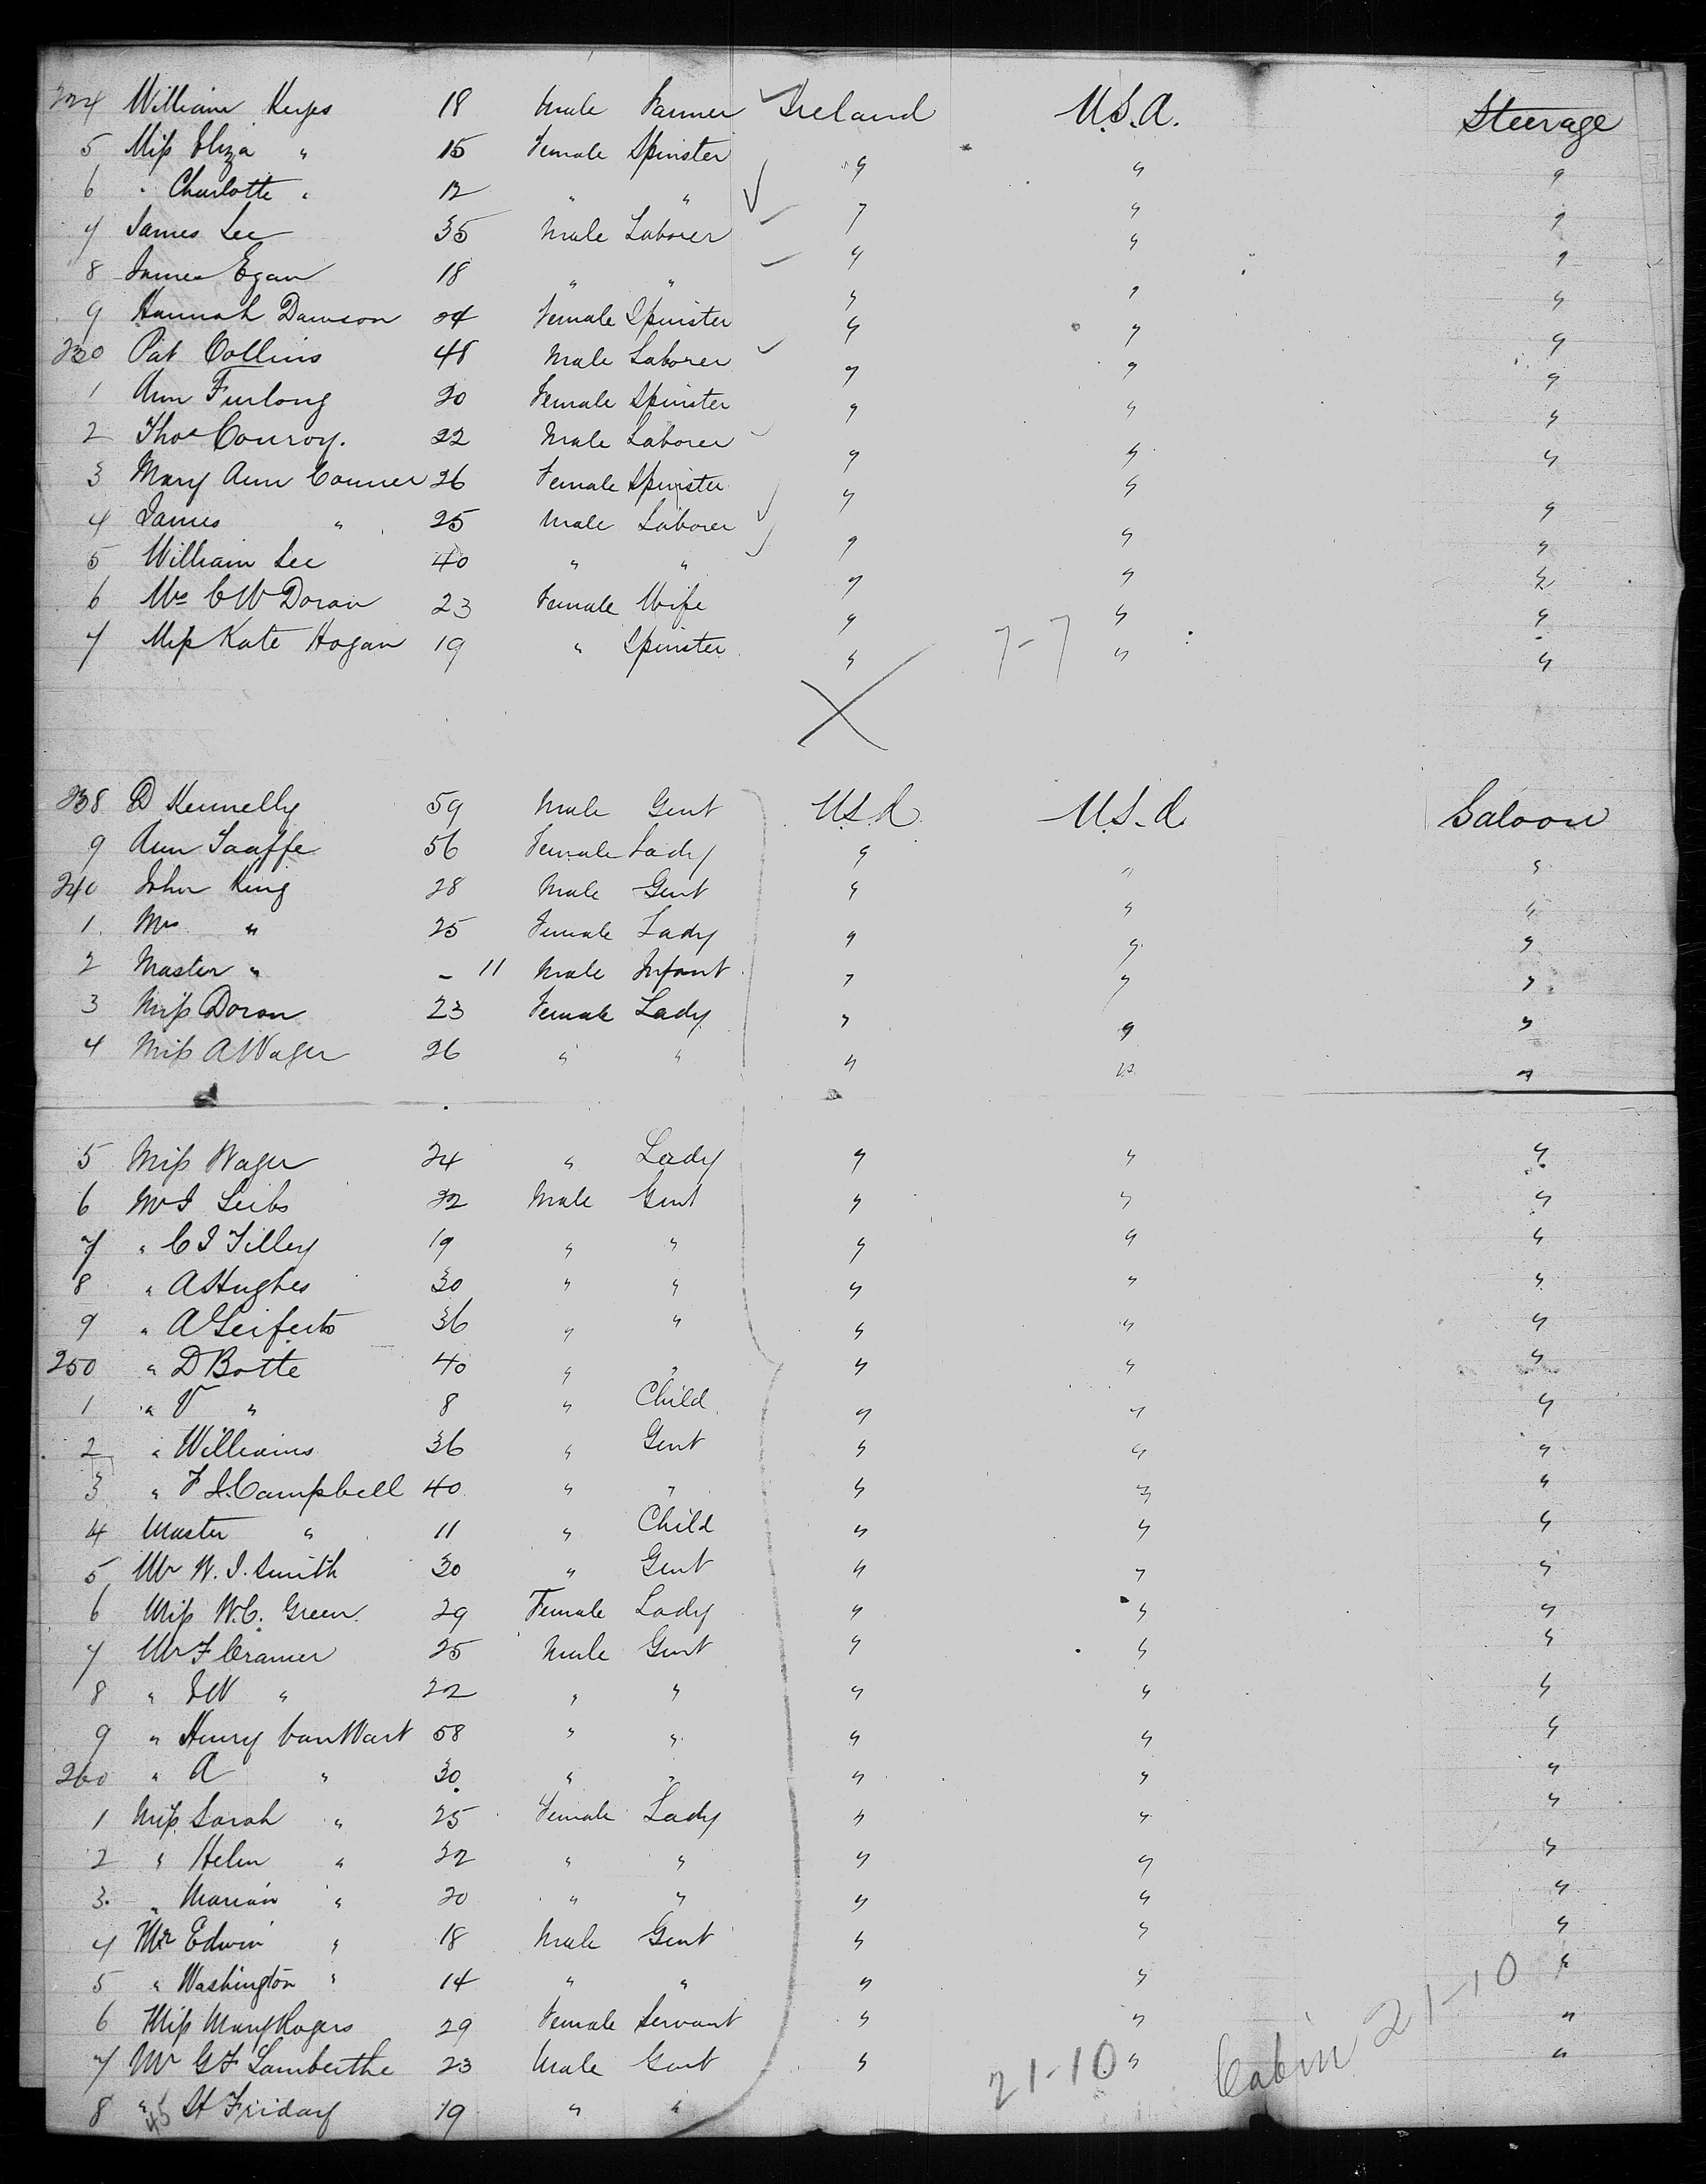 224 William Keyes 18 Male Farmer Ireland U.S.A. Steerage
5 Miss Eliza " 15 Female Spinster " " "
6 " Charlotte " 12 " " " " "
7 James Lee 35 Male Laborer " " "
8 James Egan 18 " " " " "
9 Hannah Dawson 24 Female Spinster " " "
230 Pat Collins 48 Male Laborer " " "
1 Ann Furlong 20 Female Spinster " " "
2 Thos Conroy. 22 Male Laborer " " "
3 Mary Ann Conner 26 Female Spinster " " "
4 James " 25 Male Laborer " " "
5 William Lee 40 " " " " "
6 Mrs C W Doran 23 Female Wife " " "
7 Miss Kate Hogan 19 " Spinster " " "
7-7
X
238 D Kennelly 59 Male Gent U.S.A U.S.A. Saloon
9 Ann Taaffe 56 Female Lady " " "
240 John King 28 Male Gent " " "
1. Mrs " 25 Female Lady " " "
2 Master " - 11 Male Infant " " "
3 Miss Doran 23 Female Lady " " "
4 Miss A Wager 26 " " " " "
5 Miss Wager 24 " Lady " " "
6 Mr I Leibs 22 Male Gent " " "
7 " C I Tilley 19 " " " " "
8 " A Hughes 30 " " " " "
9 " A 36 " " " " "
250 " D Botte 40 " " " " "
1 " V " 8 " Child " " "
2 " Williams 36 " Gent " " "
3 " F J. Campbell 40 " " " " "
4 Master " 11 " Child " " "
5 Mr W. I. Smith 30 " Gent " " "
6 Miss W.C. Green 29 Female Lady " " "
7 Mr F Cramer 25 Male Gent " " "
8 " J W " 22 " " " " "
9 " Henry van Wart 58 " " " " "
260 " A " 30 " " " " "
1 Miss Sarah " 25 Female Lady " " "
2 " Helen " 22 " " " " "
3. " Marian " 20 " " " " "
4 Mr Edwin " 18 Male Gent " " "
5 " Washington " 14 " " " " "
6 Miss Mary Rogers 29 Female Servant " " "
7 Mr G F Lamberthe 23 Male Gent " " "
21-10 Cabin 21-10
8 " H Friday 19 " "
45